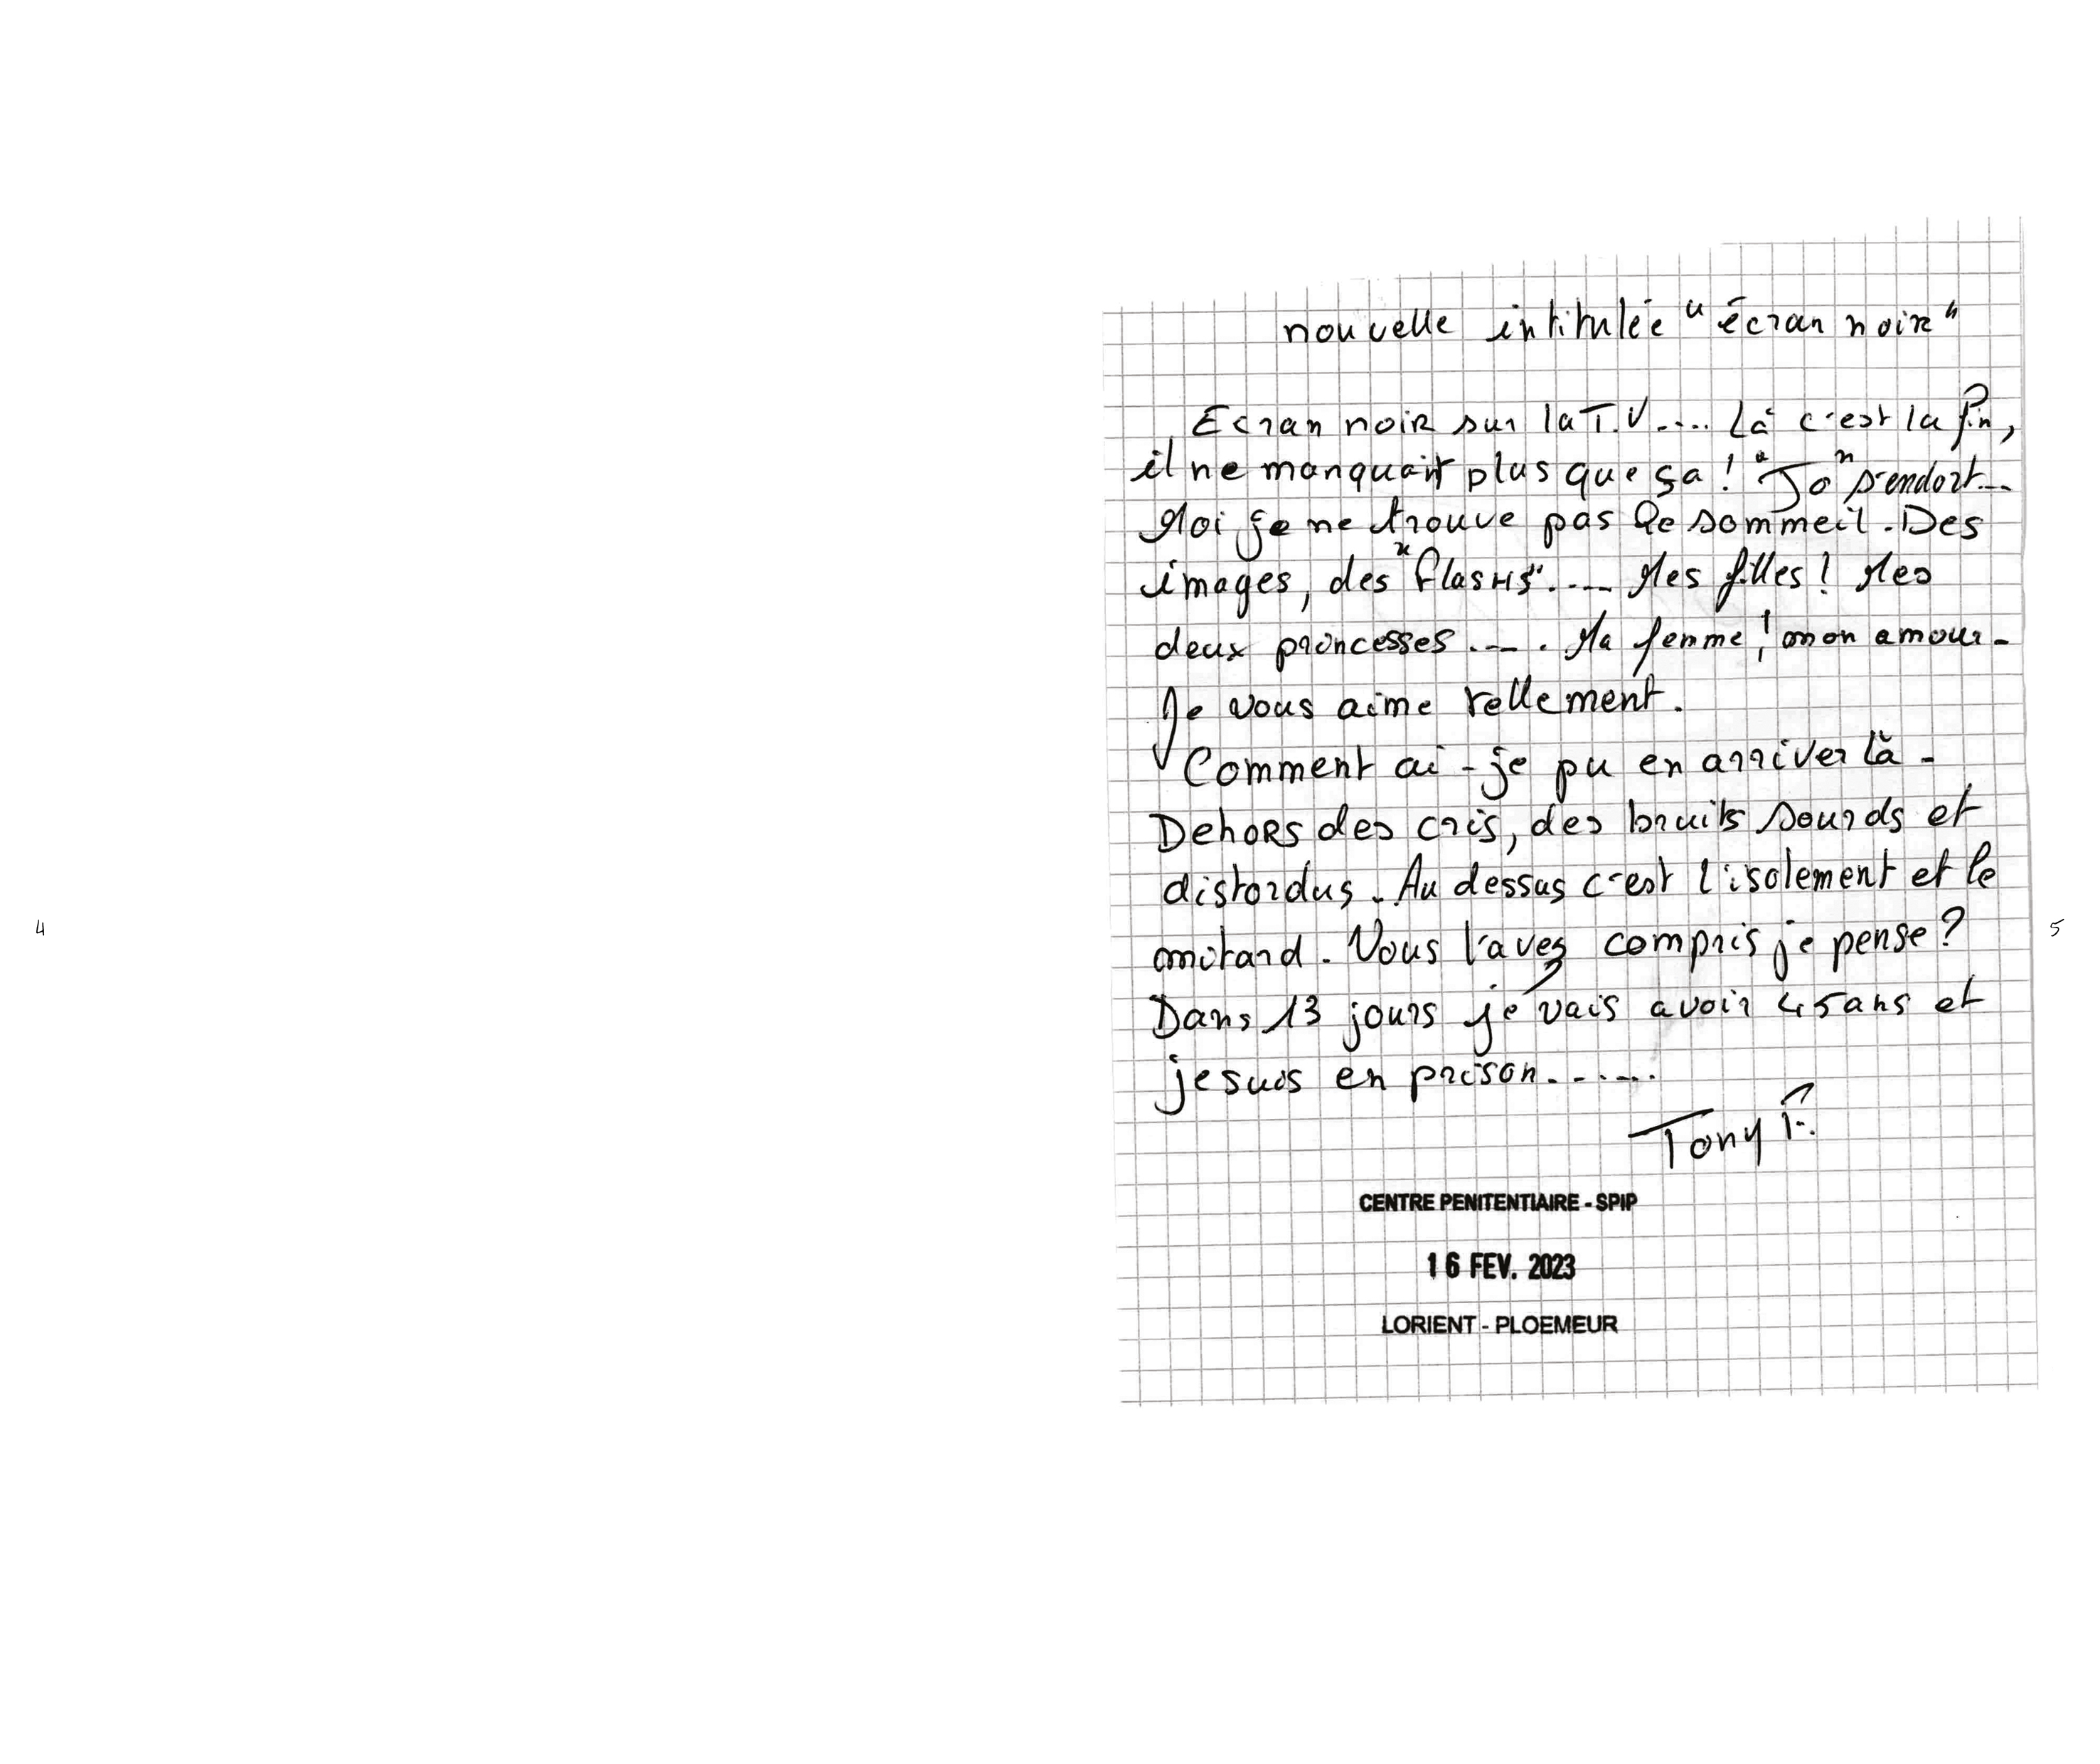 nouvelle intitulée "écran noir"
Ecran noir sur la T.V.... Là c'est la fin,
il ne manquait plus que ça ! "Jo" s'endort...
Moi je ne trouve pas le sommeil. Des
images, des "flashs".... Mes filles ! Mes
deux princesses.... Ma femme ! mon amour.
Je vous aime tellement.
Comment ai-je pu en arriver là.
Dehors des cris, des bruits sourds et
distordus. Au dessus c'est l'isolement et le
mitard. Vous l'avez compris je pense ?
Dans 13 jours je vais avoir 45 ans et
je suis en prison......
Tony F.
CENTRE PENITENTIAIRE - SPIP
16 FEV. 2023
LORIENT - PLOEMEUR
4
5